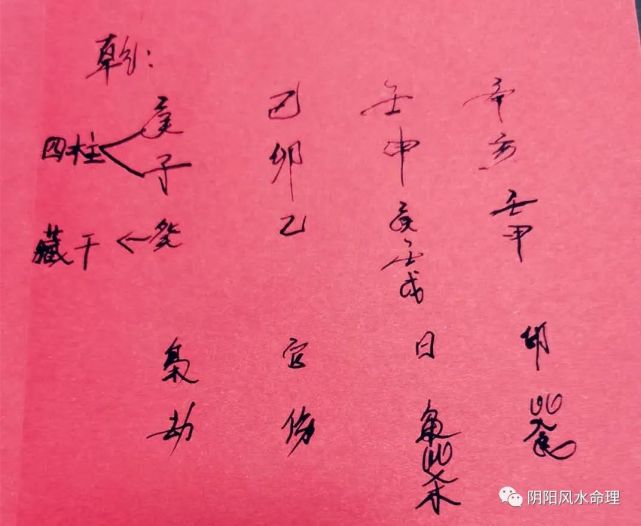 乾:
庚 己 壬 辛
四柱 子 卯 申 亥
藏干 癸 乙 庚 壬
壬 甲
戊
枭 官 日 印
劫 伤 枭 比
比 食
杀
阴阳风水命理